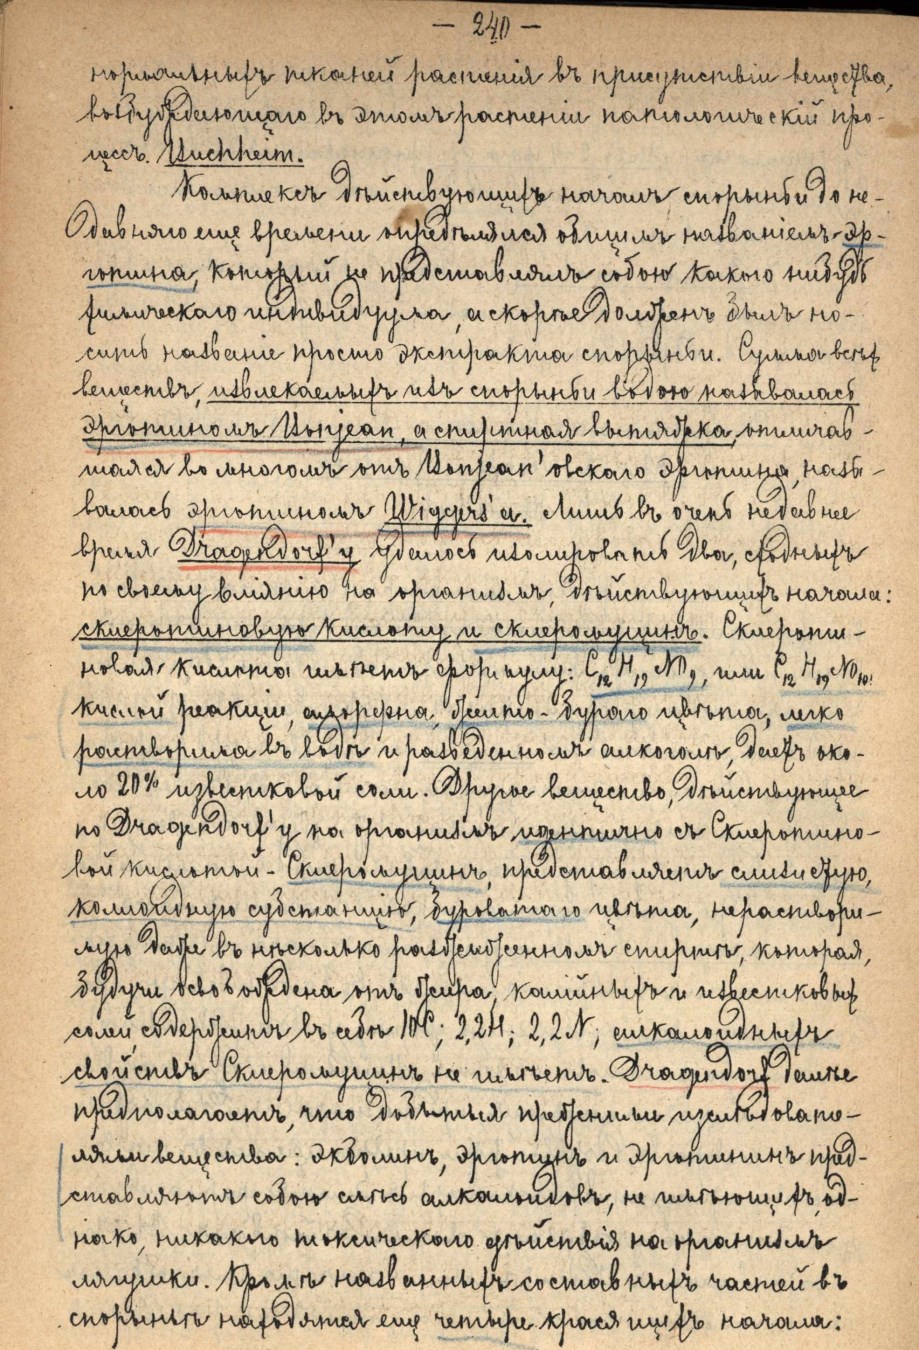 — 240 —
нормальныхъ тканей растенія въ присутствіи вещества,
возбуждающаго въ этомъ растеніи патологическій про-
цессъ. Buchheim.
Комплексъ дѣйствующихъ началъ спорыньи до не-
давняго еще времени опредѣлялся общимъ названіемъ эр-
готина, который не представлялъ собою какого нибудь
химическаго индивидуума, а скорѣе долженъ былъ но-
сить названіе просто экстракта спорыньи. Сумма всѣхъ
веществъ, извлекаемыхъ изъ спорыньи водою называлась
эрготиномъ Bonjean, а спиртная вытяжка, отличав-
шаяся во многомъ отъ Bonjean'овскаго эрготина, назы-
валась эрготиномъ Wiggers'a. Лишь въ очень недавнее
время Dragendorf'у удалось изолировать два, сходныхъ
по своему вліянію на организмъ, дѣйствующихъ начала:
склеротиновую кислоту и склеромуцинъ. Склероти-
новая кислота имѣетъ формулу: C12 H19 NO9, или C12 H19 NO10,
кислой реакціи, аморфна, желто-бураго цвѣта, легко
растворима въ водѣ и разведенномъ алкоголѣ, даетъ око-
ло 20% известковой соли. Другое вещество, дѣйствующее
по Dragendorf'у на организмъ идентично съ Склеротино-
вой кислотой - Склеромуцинъ, представляетъ слизистую,
коллоидную субстанцію, буроватаго цвѣта, нераствори-
мую даже въ нѣсколько разжиженномъ спиртѣ, которая,
будучи освобождена отъ жира, калійныхъ и известковыхъ
солей, содержитъ въ себѣ 10C; 2,2H; 2,2N; алкалоидныхъ
свойствъ Склеромуцинъ не имѣетъ. Dragendorf далѣе
предполагаетъ, что добытыя прежними изслѣдовате-
лями вещества: экболинъ, эрготинъ и эрготининъ пред-
ставляютъ собою смѣсь алкалоидовъ, не имѣющихъ, од-
нако, никакого токсическаго дѣйствія на организмъ
лягушки. Кромѣ названныхъ составныхъ частей въ
спорыньѣ находятся еще четыре красящихъ начала: